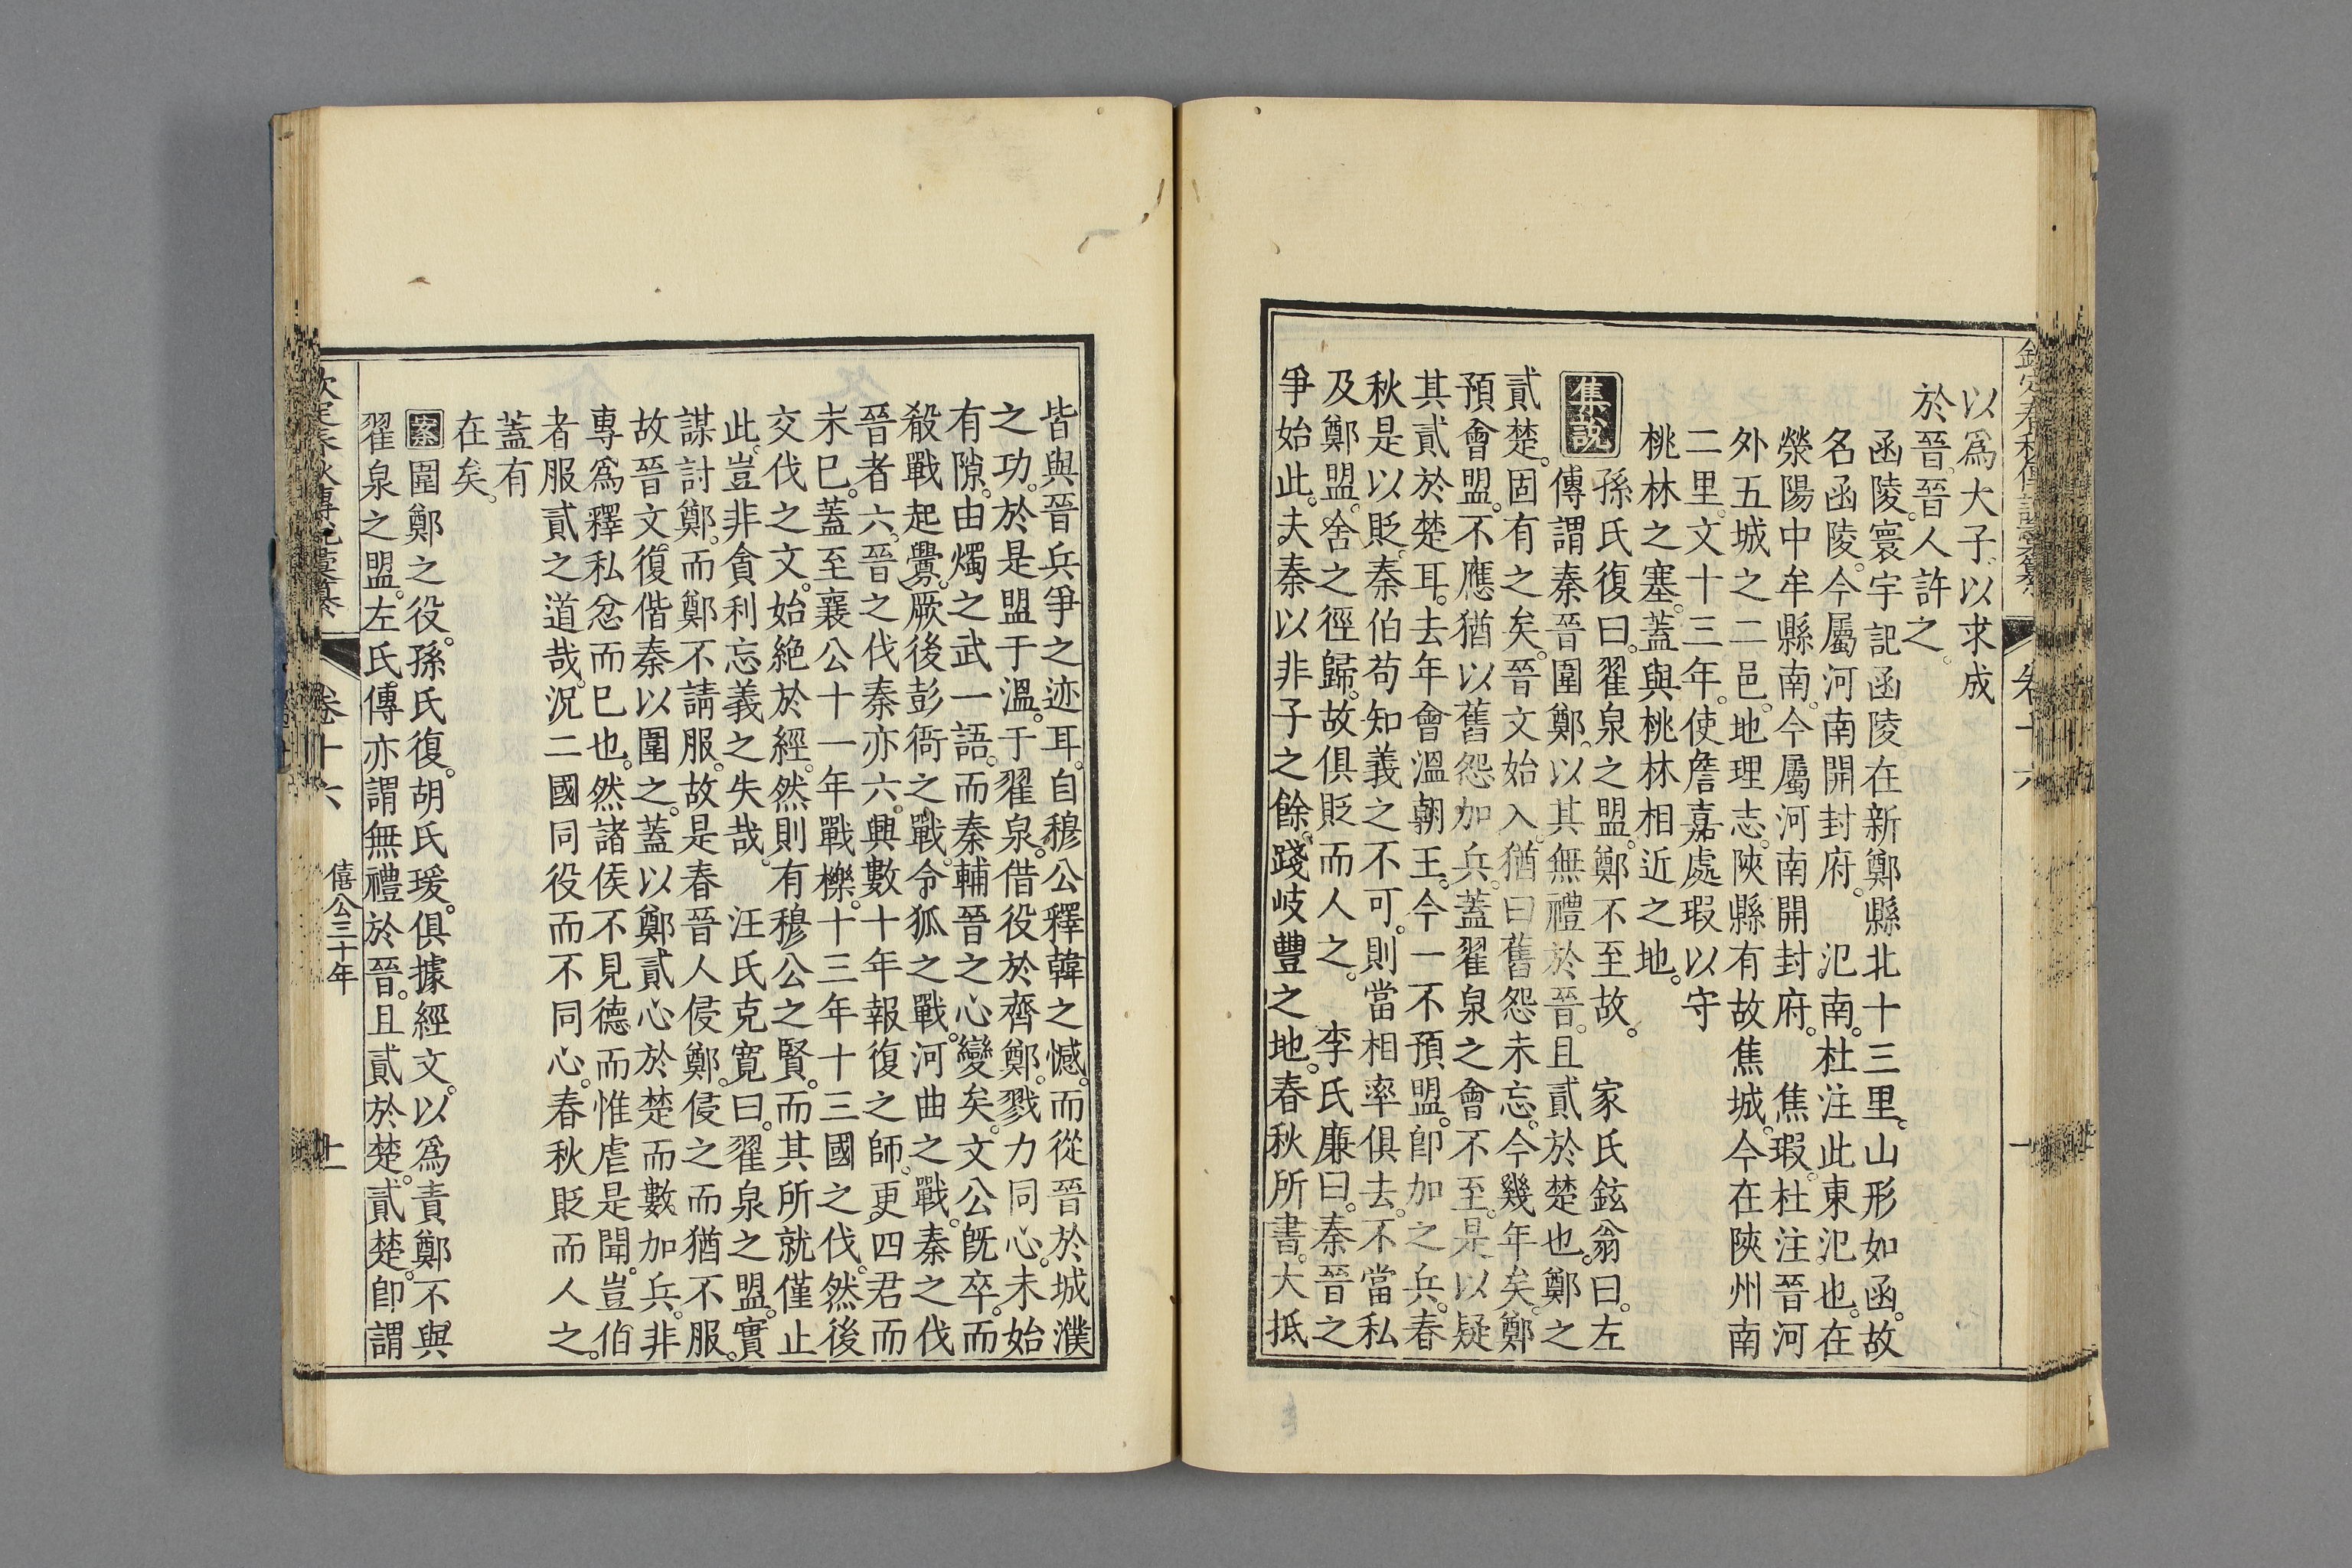 以爲大子以求成
於晉晉人許之。
函陵。寰宇記函陵在新鄭縣北十三里。山形如函。故
名函陵。今屬河南開封府。 氾南。杜注此東氾也。在
滎陽中牟縣南。今屬河南開封府。 焦瑕。杜注晉河
外五城之二邑。地理志。陝縣有故焦城。今在陝州南
二里。文十三年。使詹嘉處瑕以守
桃林之塞。蓋與桃林相近之地。
集說 孫氏復曰。翟泉之盟。鄭不至故。 家氏鉉翁曰。左
傳謂秦晉圍鄭。以其無禮於晉。且貳於楚也。鄭之
貳楚。固有之矣。晉文始入。猶曰舊怨未忘。今幾年矣。鄭
預會盟。不應猶以舊怨加兵。蓋翟泉之會不至。是以疑
其貳於楚耳。去年會溫朝王。今一不預盟。卽加之兵。春
秋是以貶。秦伯苟知義之不可。則當相率俱去。不當私
及鄭盟。舍之徑歸。故俱貶而人之。 李氏廉曰。秦晉之
爭始此。夫秦以非子之餘。踐岐豐之地。春秋所書。大抵
皆與晉兵爭之迹耳。自穆公釋韓之憾。而從晉於城濮
之功。於是盟于溫。于翟泉。借役於齊鄭。戮力同心。未始
有隙。由燭之武一語。而秦輔晉之心變矣。文公旣卒。而
殽戰起釁。厥後彭衙之戰。令狐之戰。河曲之戰。秦之伐
晉者六。晉之伐秦亦六。興數十年報復之師。更四君而
未巳。蓋至襄公十一年戰櫟。十三年十三國之伐。然後
交伐之文。始絕於經。然則有穆公之賢。而其所就僅止
此。豈非貪利忘義之失哉。 汪氏克寬曰。翟泉之盟。實
謀討鄭。而鄭不請服。故是春晉人侵鄭。侵之而猶不服。
故晉文復偕秦以圍之。蓋以鄭貳心於楚而數加兵。非
專爲釋私忿而巳也。然諸侯不見德而惟虐是聞。豈伯
者服貳之道哉。況二國同役而不同心。春秋貶而人之。
蓋有
在矣。
案 圍鄭之役。孫氏復。胡氏瑗。俱據經文。以爲責鄭不與
翟泉之盟。左氏傳亦謂無禮於晉。且貳於楚。貳楚。卽謂
卷十六 僖公三十年